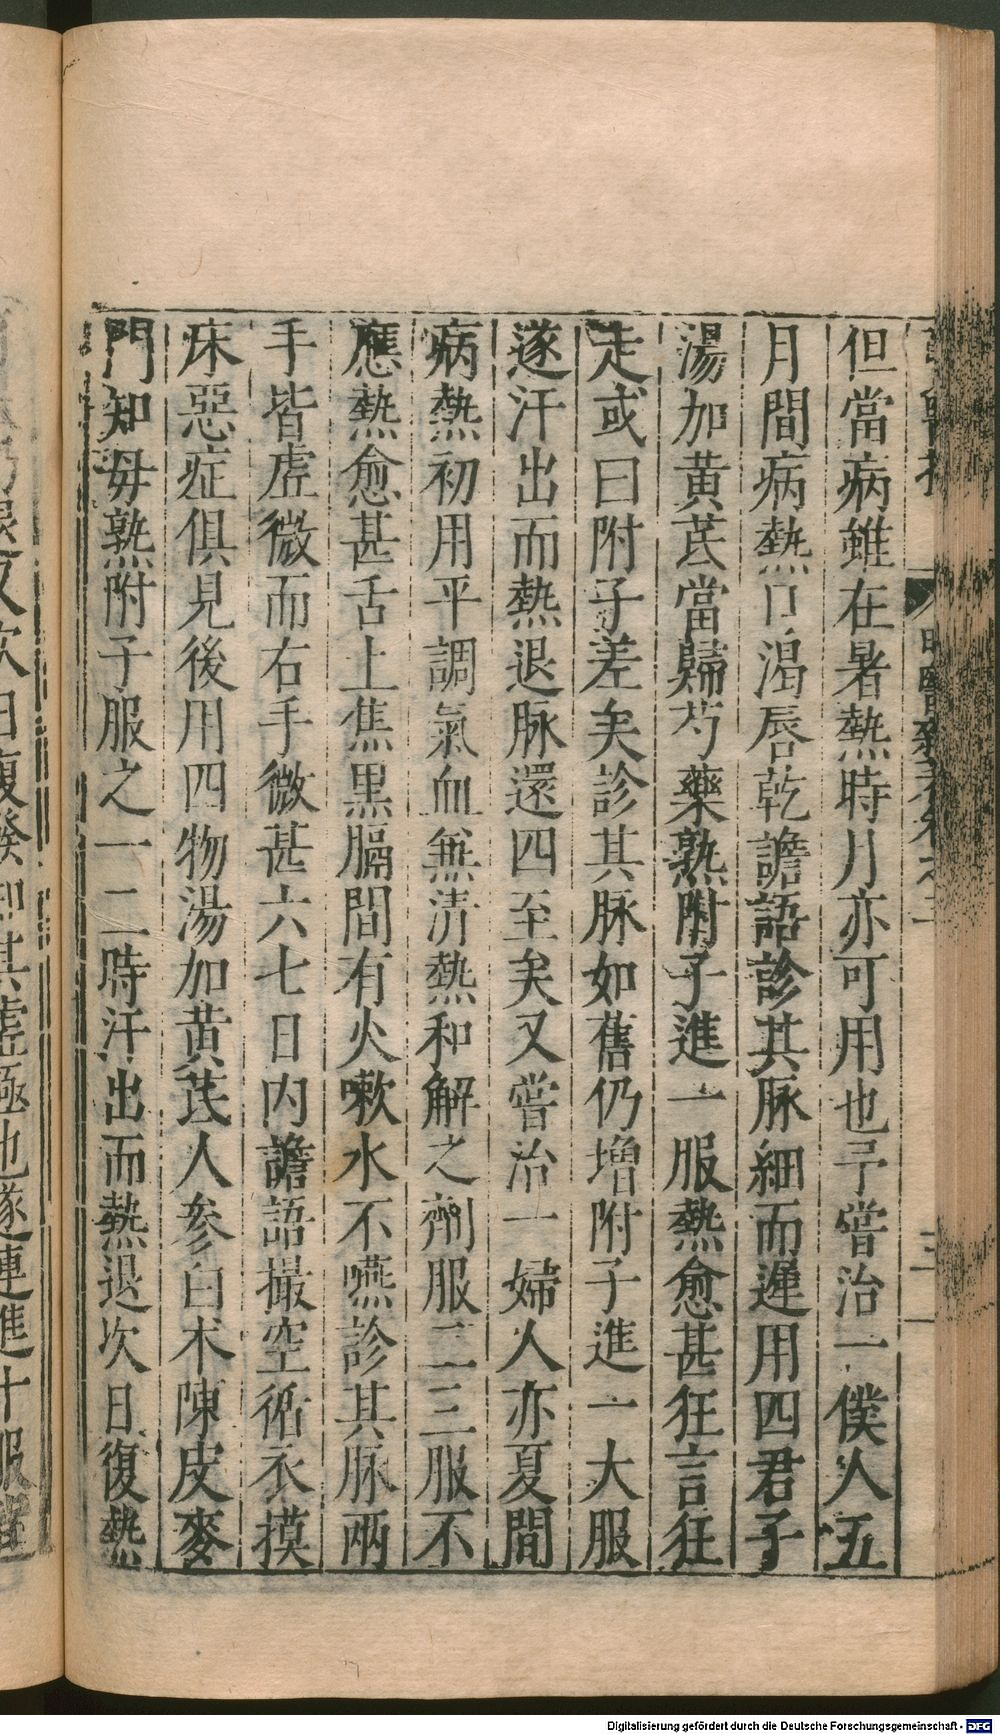 但當病雖在暑熱時月亦可用也予嘗治一僕人五
月間病熱口渴唇乾譫語診其脉細而遲用四君子
湯加黃芪當歸芍藥熟附子進一服熱愈甚狂言狂
走或曰附子差矣診其脉如舊仍增附子進一大服
遂汗出而熱退脉還四至矣又嘗治一婦人亦夏間
病熱初用平調氣血兼清熱和解之劑服二三服不
應熱愈甚舌上焦黑膈間有火嗽水不嚥診其脉兩
手皆虛微而右手微甚六七日內譫語撮空循衣摸
床惡症俱見後用四物湯加黃芪人參白朮陳皮麥
門知母熟附子服之一二時汗出而熱退次日復熱
其虛極也遂連進十服
Digitalisierung gefördert durch die Deutsche Forschungsgemeinschaft - DFG